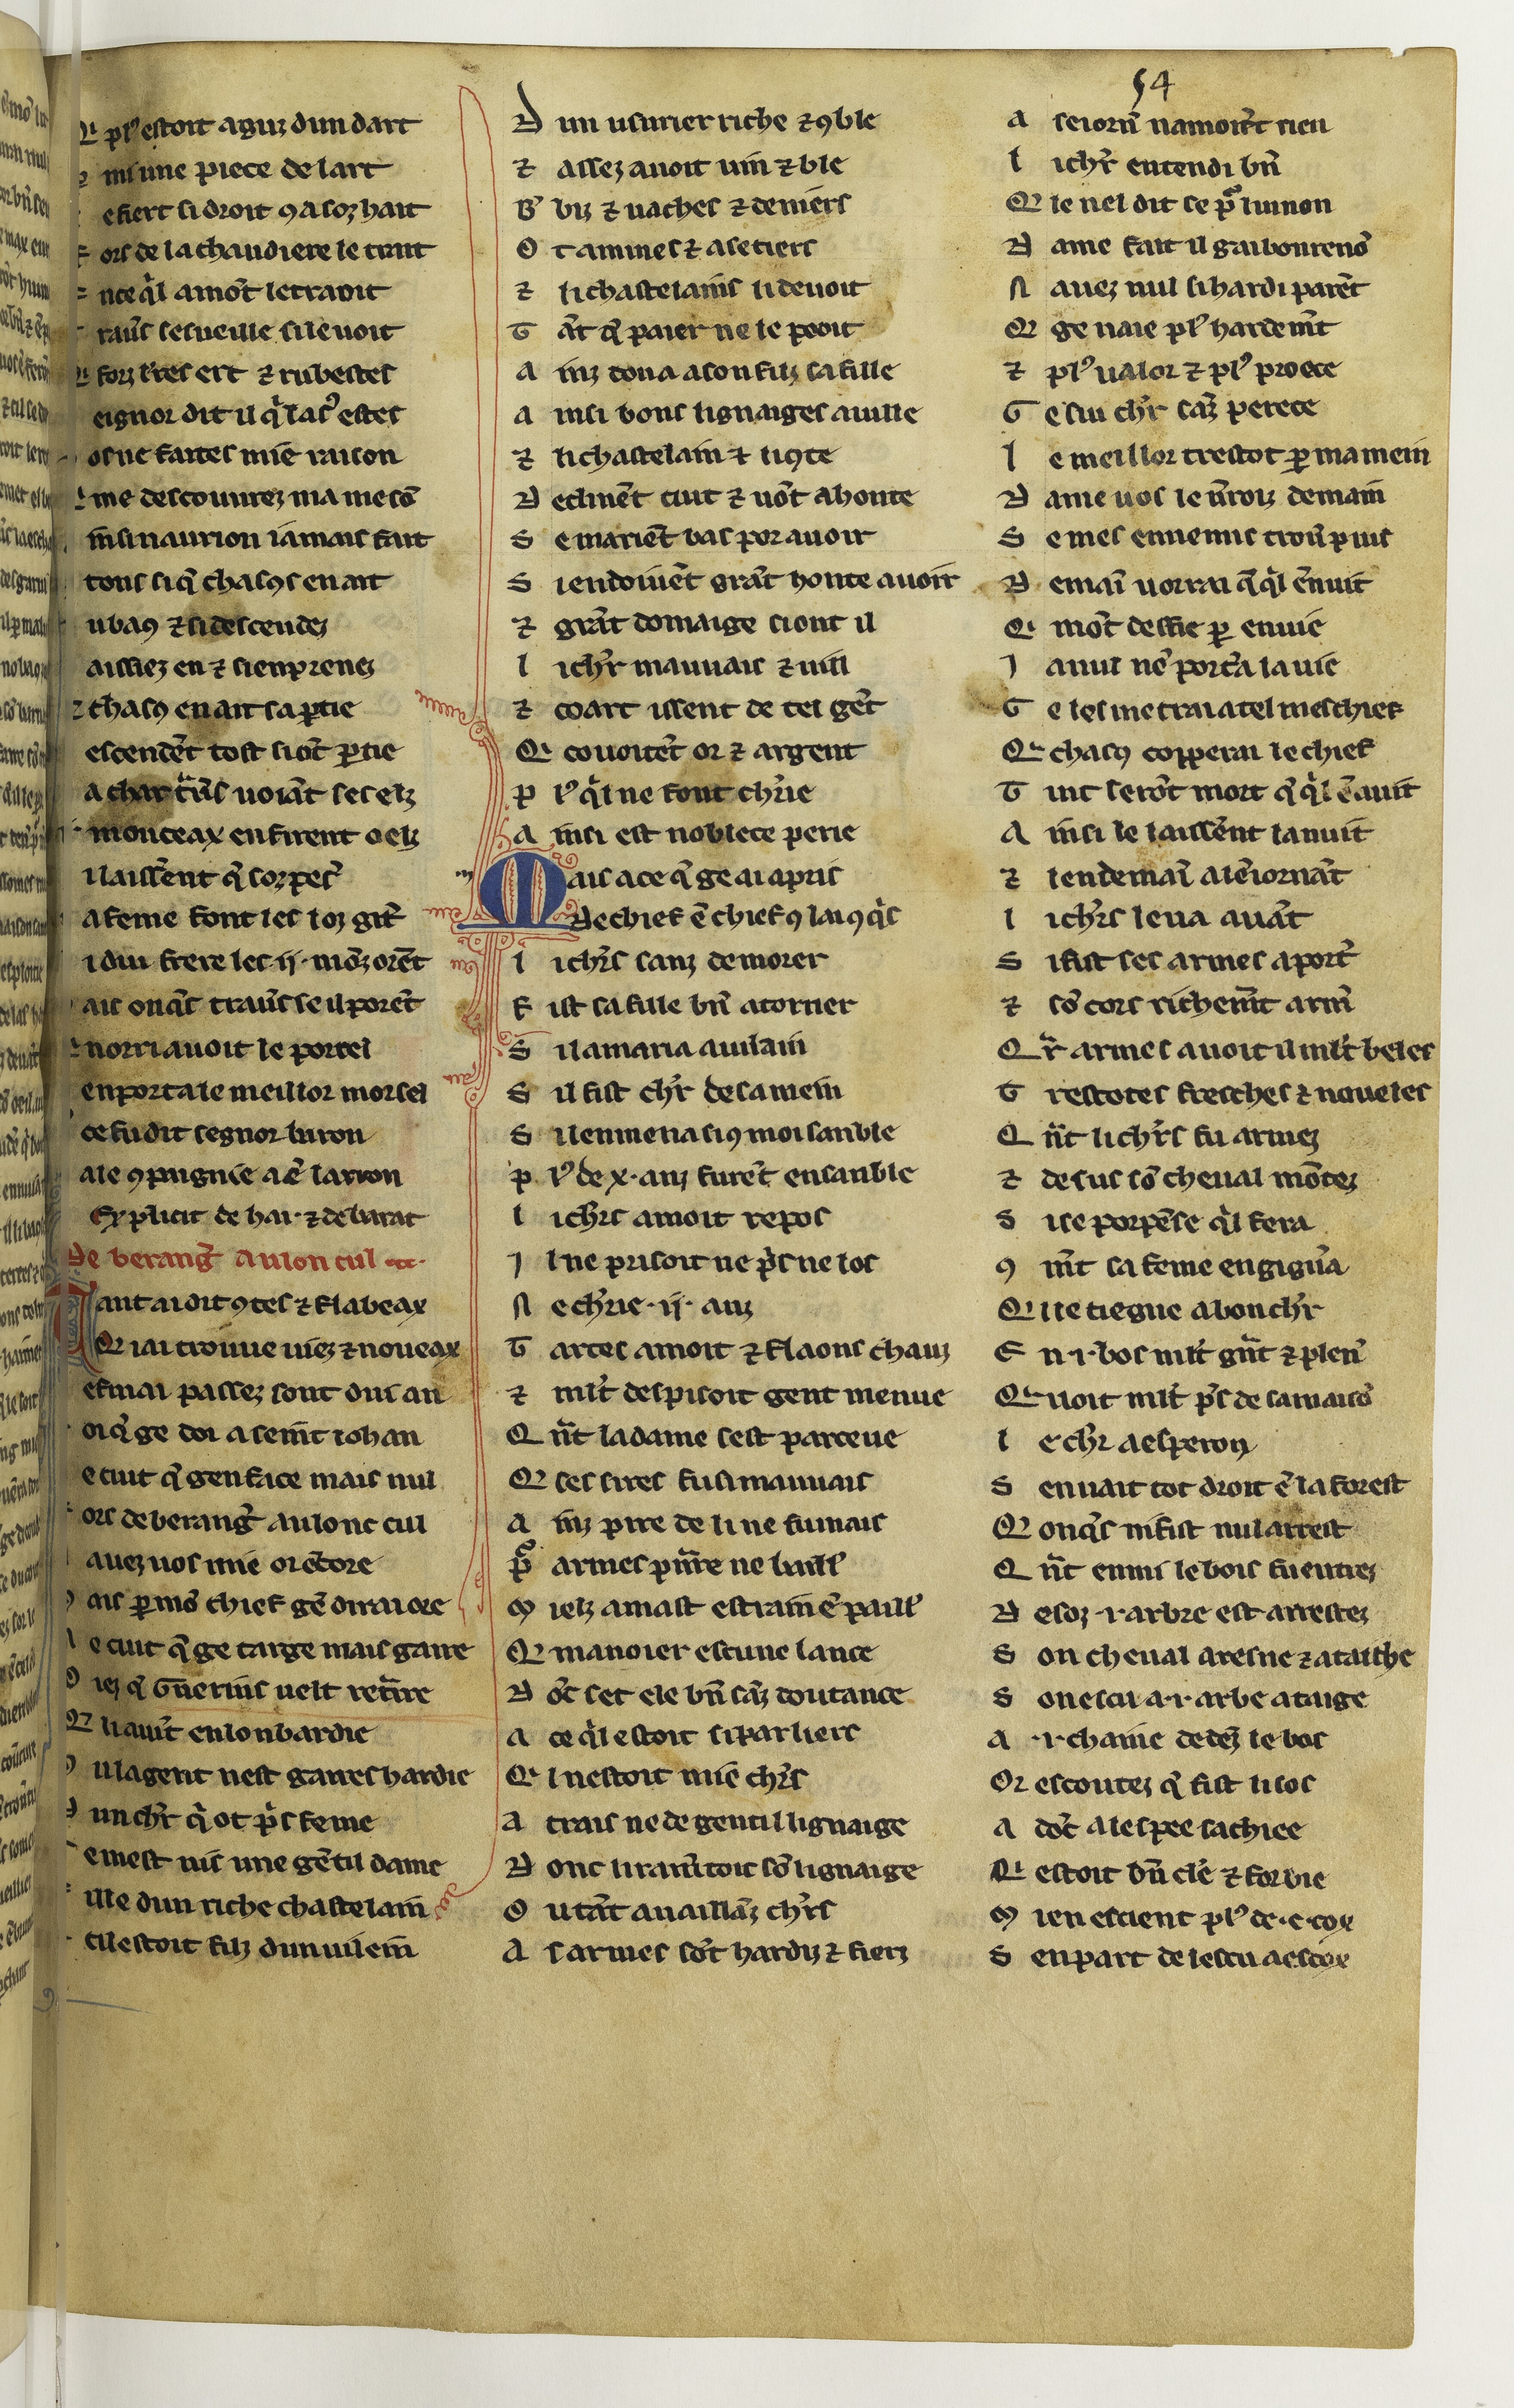 54
Qi plꝰ estoit aguz dun dart
mi une piece de lart
e fiert si droit ꝯ a soz hait
ors de la chaudiere le trait
nce qͥl amōt le traoit
rauˢs sesueille si le uoit
forz lerres ert ⁊ rubestes
eignor dit il qͥ lasꝰ estes
os ne faites mie raison
me descouurez ma mesō
insi naurion iamais fait
tons si q̄ chascꝰs en ait
u bacō ⁊ si descendez
aissiez en ⁊ si en prenez
⁊ chascꝰ en ait sa ꝑtie
escendēt tost siōt ꝑtie
a char t̾ūs uoiāt ses elz
monceax en firent oelz
i laissent q̄ soz pesˀ
a feme font les loz git̾
i dui frere les ·ij· mōz orēt
ais onq̄s trauˢs le il porēt
norri auoit le porcel
en porta le meillor morsel
ce fu dit segnor baron
ale ꝯpaignie a ē larron
Explicit de hai· ⁊ de barat
De berang̾ au lon cul etc·
Tant ai dit ꝯtes ⁊ flabeax
Q iai trouue uiez ⁊ noueax
e finai passez sont dui an
oi q̄ ge doi a semt iohan
e cuit q̄ gen face mais nul
ors de berang̾ au lonc cul
auez uos mie or ētore
ais ꝑ mō chief gē dirai ore
e cuit q̄ ge targe mais gaire
iez q̄ Guerins uelt ret̾re
Q li auīt en lonbardie
u la gent nest gaires hardie
un chr̄ qͥ ot pͥs feme
emest uis une gētil dame
ille dun riche chastelain
cil estoit filz dun uilein
D un usurier riche ⁊ ꝯble
⁊ assez auoit uin ⁊ ble
B' biz ⁊ uaches ⁊ deniers
O t a mines ⁊ a setiers
⁊ li chastelains li deuoit
T āt q̄ paier ne le pooit
A inz dona a son filz sa fille
A insi bons lignaiges auille
⁊ li chastelain ⁊ li ꝯte
D eclinēt tuit ⁊ uōt a honte
S e mariēt bas por auoir
S i en doiuēt grāt honte auoir
⁊ grāt domaige si ont il
l i chr̄ mauuais ⁊ uill
⁊ coart issent de tel gēt
Q couoitēt or ⁊ argent
P lꝰ qͥl ne font ch'rie
A insi est noblece perie
Mais a ce q̄ ge ai apris
De chief ē chief ꝯ lai ꝯqͥs
l i chr̄s sanz demorer
F ist sa fille bn̄ atorner
S i la maria au uilain
S i l fist chr̄ de sa mein
S i lenmena si ꝯ moi sanble
P lꝰ de x· anz furēt ensanble
l i chr̄s amoit repos
I l ne prisoit ne pͥs ne los
N e ch'rie ·ij· auz
T artes amoit ⁊ flaons chauz
⁊ ml't despisoit gent menue
Q n̄t la dame sest parceue
Q ses sires fu si mauuais
A inz pire de li ne fu mais
P̄ armes pnre ne baillˀ
M ielz amast estrain ē paillˀ
Q manoier escu ne lance
D ōc set ele bn̄ sāz doutance
A ce qͥl estoit si parliers
Q l nestoit mie chr̄s
A trais ne de gentil lignaige
D onc li ramētoit sō lignaige
O u tāt a uaillāz chr̄s
A s armes sōt hardiz ⁊ fiers
A seiorn̄ namoiēt rien
l i chr̄ entendi bn̄
Q le nel dit se p̄ lui non
D ame fait il gai bon renō
N auez nul si hardi parēt
Q ge naie plꝰ hardemt
⁊ plꝰ ualor ⁊ plꝰ proece
G e sui chr̄ sāz perece
l e meillor trestot ꝑ ma mein
D ame uos le ūroiz demain
S e mes ennemis trouˢ puis
D emaī uorrai q̄ qͥl ēnuit
Q mōt deffie ꝑ enuie
I a nul nē portˢa la uie
G e les metrai a tel meschief
Q chascꝰ copperai le chief
T uit serōt mort q̄ qͥl ēnuit
A insi le laissent la nuit
⁊ lendemaī a lēiornāt
l i chr̄s leua auāt
S i fist ses armes aport̾
⁊ sō cors richemt arm̄
Q r̄ armes auoit il ml't beles
T restotes fresches ⁊ noueles
Q n̄t li chr̄s fu armez
⁊ desus sō cheual mōtez
S i se porpēse qͥl fera
ꝯ mt sa feme engignˢa
Q l le tiegne a bon chr̄
E n ·i· bos ml't g̾nt ⁊ plenˀ
Q uoit ml't pͥs de sa maisō
l e chr̄ a esperon
S en uait tot droit ē la forest
Q onq̄s ni fist nul arrest
Q n̄t enmi le bois fu entrez
D esoz ·i· arbre est arrestez
S on cheual aresne ⁊ atatche
S on escu a ·i· arbe ataige
A ·i· chaine dedēz le bos
Or escoutez q̄ fist li sos
A dōc a lespee sachiee
Q estoit bn̄ cleˀ ⁊ forbie
M ien escient plꝰ de ·c· cox
S en part de lescu a escox